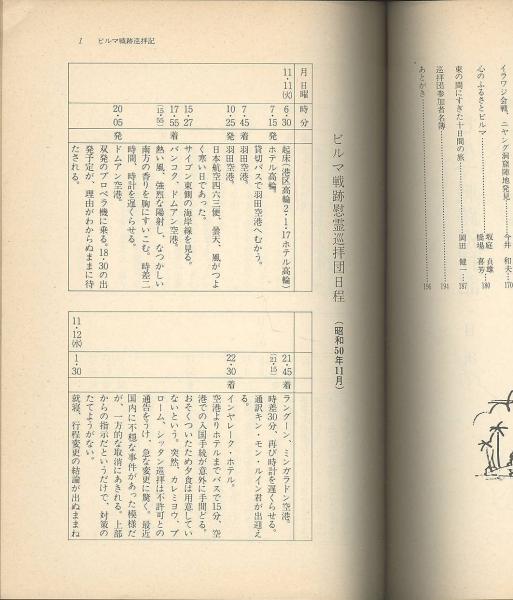 イラワジ会戦、ニヤング洞窟陣地発見…今井 和夫…170
心のふるさとビルマ…坂庭 貞雄 橋場 喜芳…180
束の間にすぎた十日間の旅…岡田 健一…187
巡拝団参加者名簿…194
あとがき…196
1 ビルマ戦跡巡拝記
ビルマ戦跡慰霊巡拝団日程（昭和50年11月）
月日曜 時分
11・11(火) 6・30 起床(港区高輪2・1・17ホテル高輪)
7・15発 ホテル高輪。
貸切バスで羽田空港へむかう。
7・45着 羽田空港。
10・25発 羽田空港。
日本航空四六三便、曇天、風がつよ
く寒い日であった。
15・27 サイゴン東側の海岸線を見る。
17・55着 バンコク、ドムアン空港。
(15・55) 熱い風、強烈な陽射し、なつかしい
南方の香りを胸にすいこむ。時差二
時間、時計を遅くらせる。
20・05発 ドムアン空港。
双発のプロペラ機に乗る。18・30の出
発予定が、理由がわからぬままに待
たされる。
21・45着 ラングーン、ミンガラドン空港。
(21・15) 時差30分、再び時計を遅くらせる。
通訳キン・モン・ルイン君が出迎え
る。
22・30着 インヤレーク・ホテル。
空港よりホテルまでバスで15分、空
港での入国手続が意外に手間どる。
おそくついたため夕食は用意してい
ないという。突然、カレミョウ、プ
ローム、シッタン巡拝は不許可との
通告をうけ、急な変更に驚く。最近
国内に不穏な事件があった模様だ
が、一方的な取消にあきれる。上部
からの指示だというだけで、対策の
たてようがない。
11・12(水) 1・30 就寝、行程変更の結論が出ぬままね